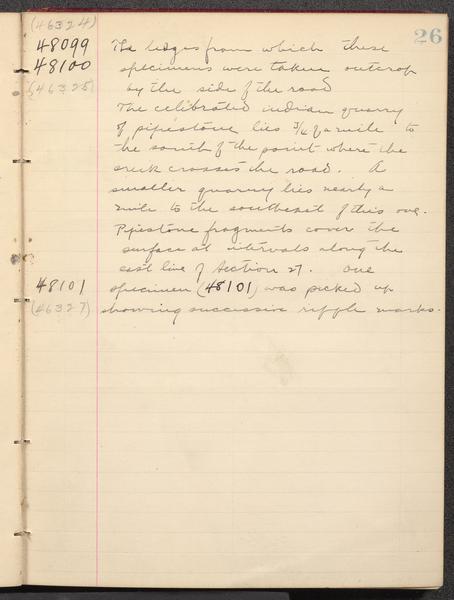 26
(46324)
48099 The ledges from which these
48100 specimens were taken outcrop
(46325) by the side of the road
The celibrated indian quarry
of pipestone lies 3/4 of a mile to
the south of the point where the
creek crosses the road. A
smaller quarry lies nearly a
mile to the southeast of this one.
Pipestone fragments cover the
surface at intervals along the
east line of Section 27. One
48101 specimen (48101) was picked up
(46327) showing successive ripple marks.